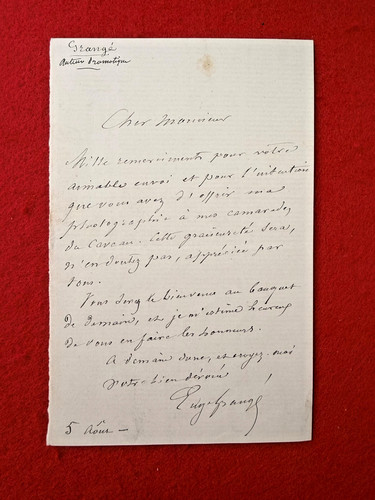 Grangé
Auteur Dramatique
Cher Monsieur
Mille remerciments pour votre
aimable envoi et pour l'intention
que vous avez d'offrir ma
photographie à mes camarades
du Caveau. Cette gracieuseté sera,
n'en doutez pas, appréciée par
tous.
Vous serez le bienvenu au banquet
de demain, et je m'estime heureux
de vous en faire les honneurs.
A demain donc, et croyez-moi
Votre bien dévoué
Eug. Grangé
5 Août —